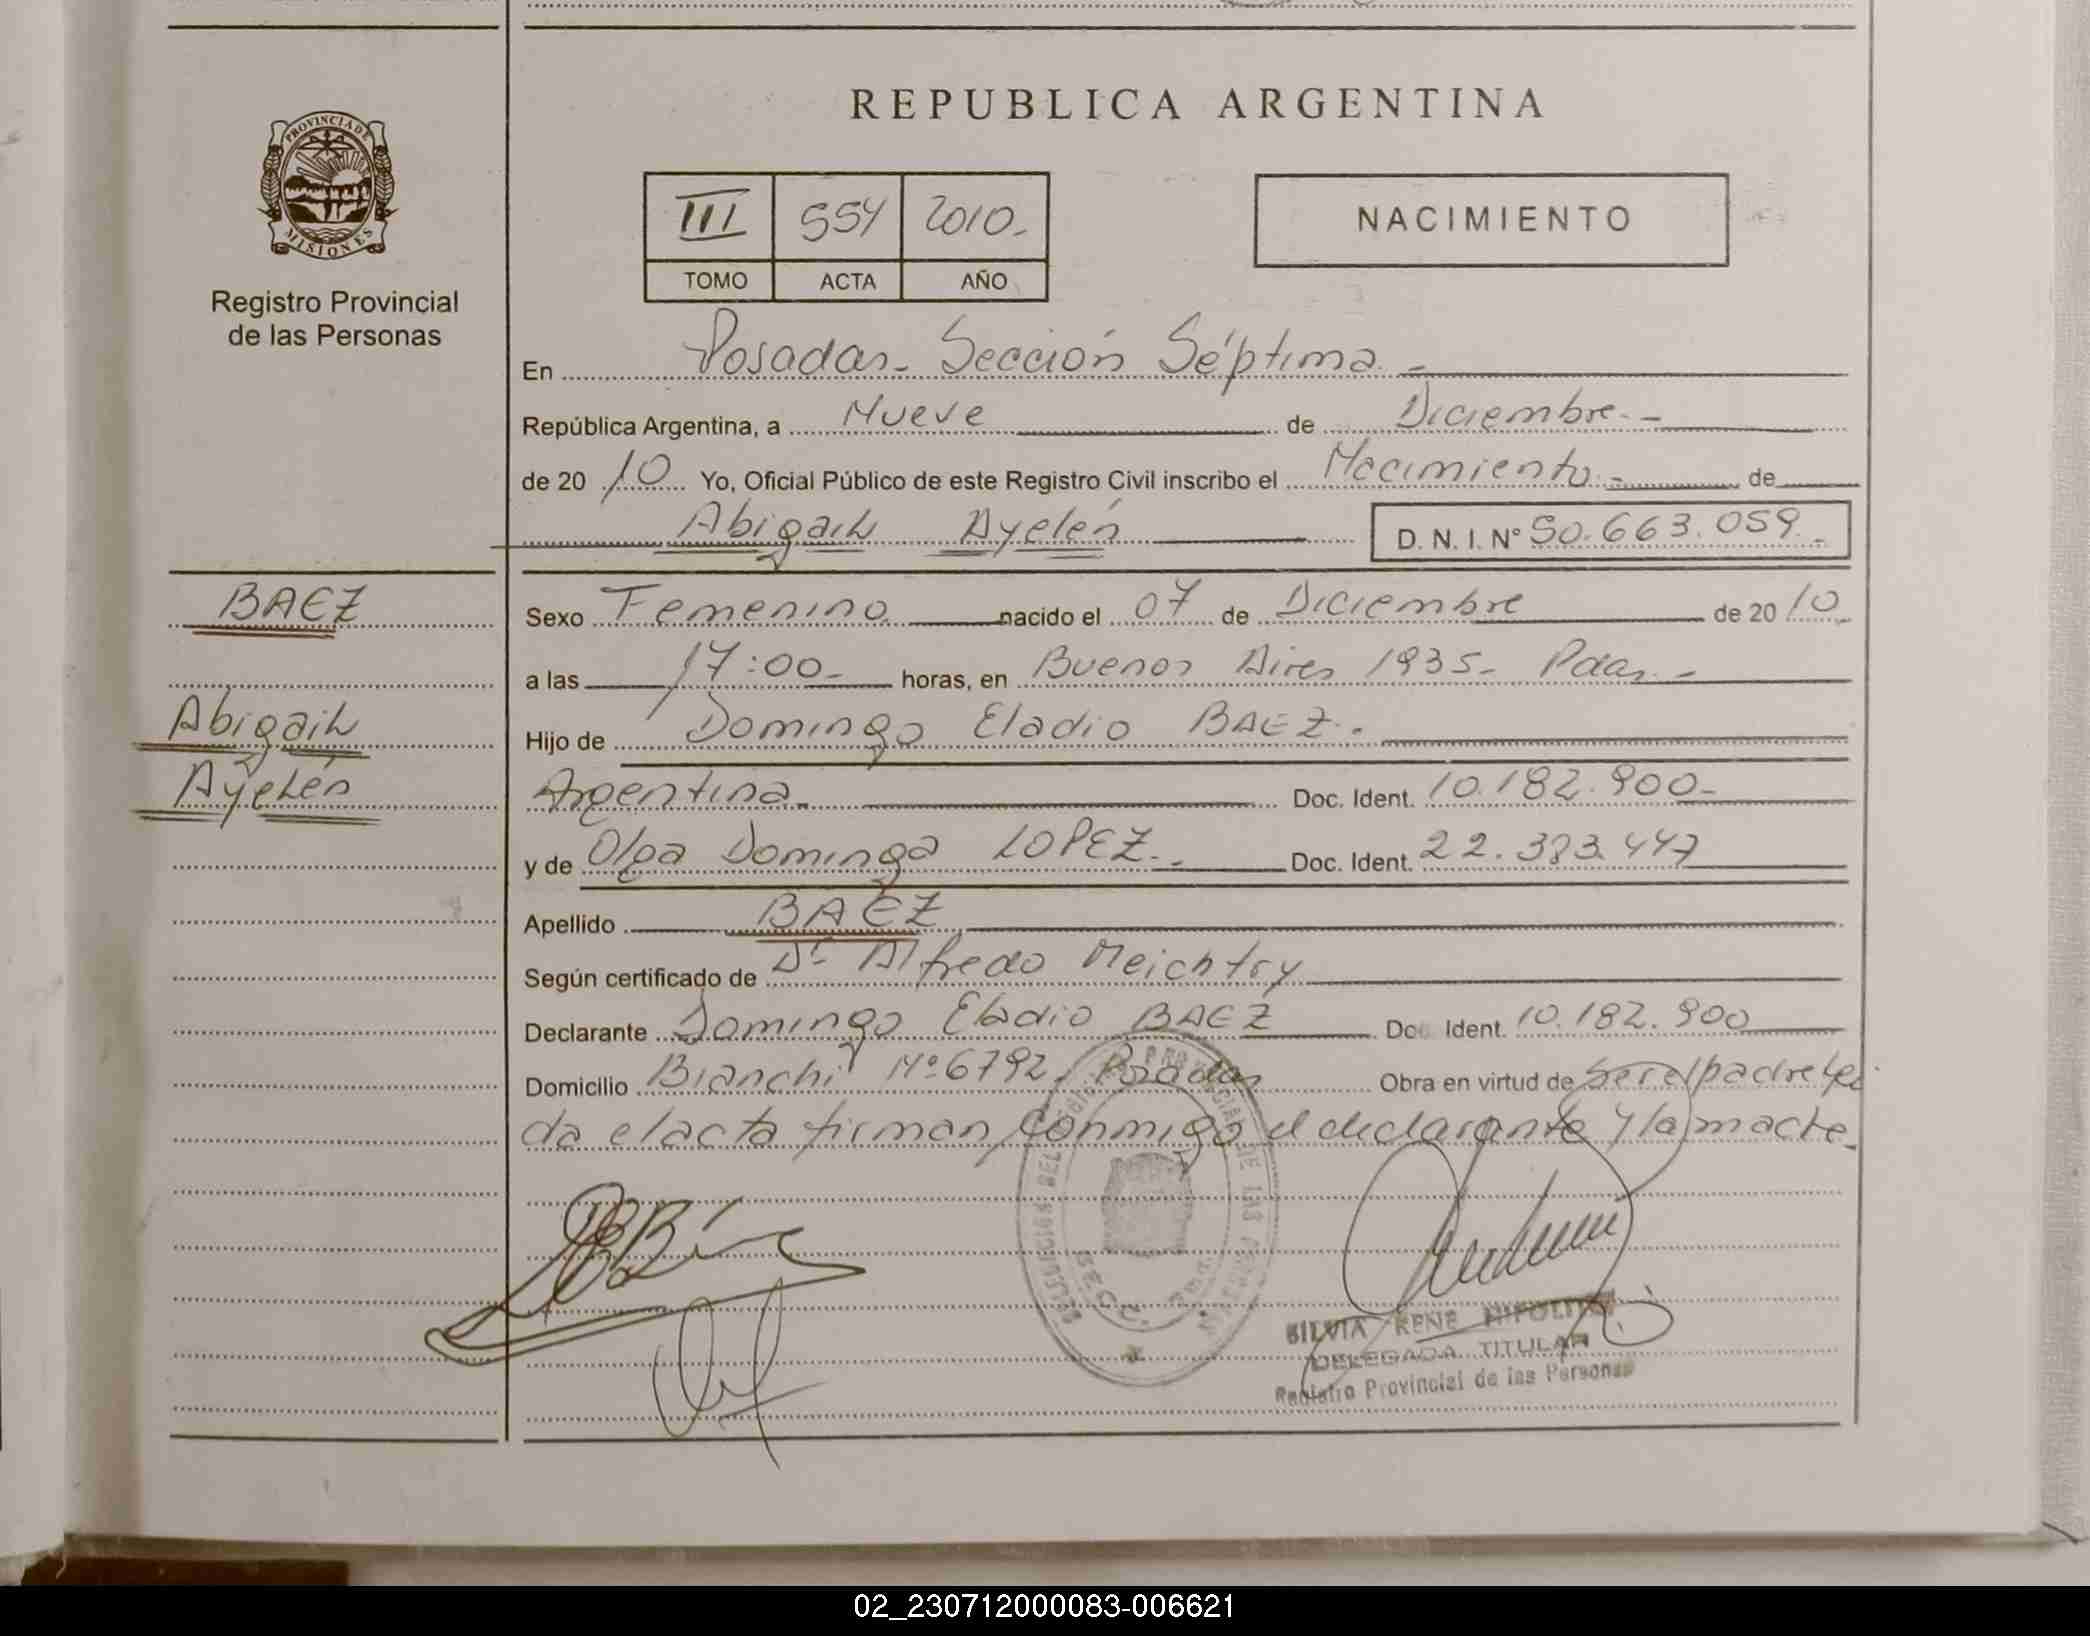 REPUBLICA ARGENTINA
PROVINCIA DE
MISIONES
Registro Provincial
de las Personas
III 554 2010.-
TOMO ACTA AÑO
NACIMIENTO
En Posadas.- Sección Séptima.-
República Argentina, a Nueve de Diciembre.-
de 20 10 Yo, Oficial Público de este Registro Civil inscribo el Nacimiento.- de
Abigail Ayelén D. N. I. N° 50.663.059.-
BAEZ
Abigail
Ayelén
Sexo Femenino nacido el 07 de Diciembre de 20 10
a las 17:00.- horas, en Buenos Aires 1935.- Pdas.-
Hijo de Domingo Eladio BAEZ.-
Argentina.- Doc. Ident. 10.182.900.-
y de Olga Dominga LOPEZ.- Doc. Ident. 22.383.447
Apellido BAEZ
Según certificado de Dr Alfredo Meichtry
Declarante Domingo Eladio BAEZ Doc. Ident. 10.182.900
Domicilio Bianchi Nº 6792, Posadas Obra en virtud de ser el padre Leí
da el acta firman conmigo el declarante y la madre.
SILVIA RENE HIPOLITO
DELEGADA TITULAR
Registro Provincial de las Personas
02_230712000083-006621